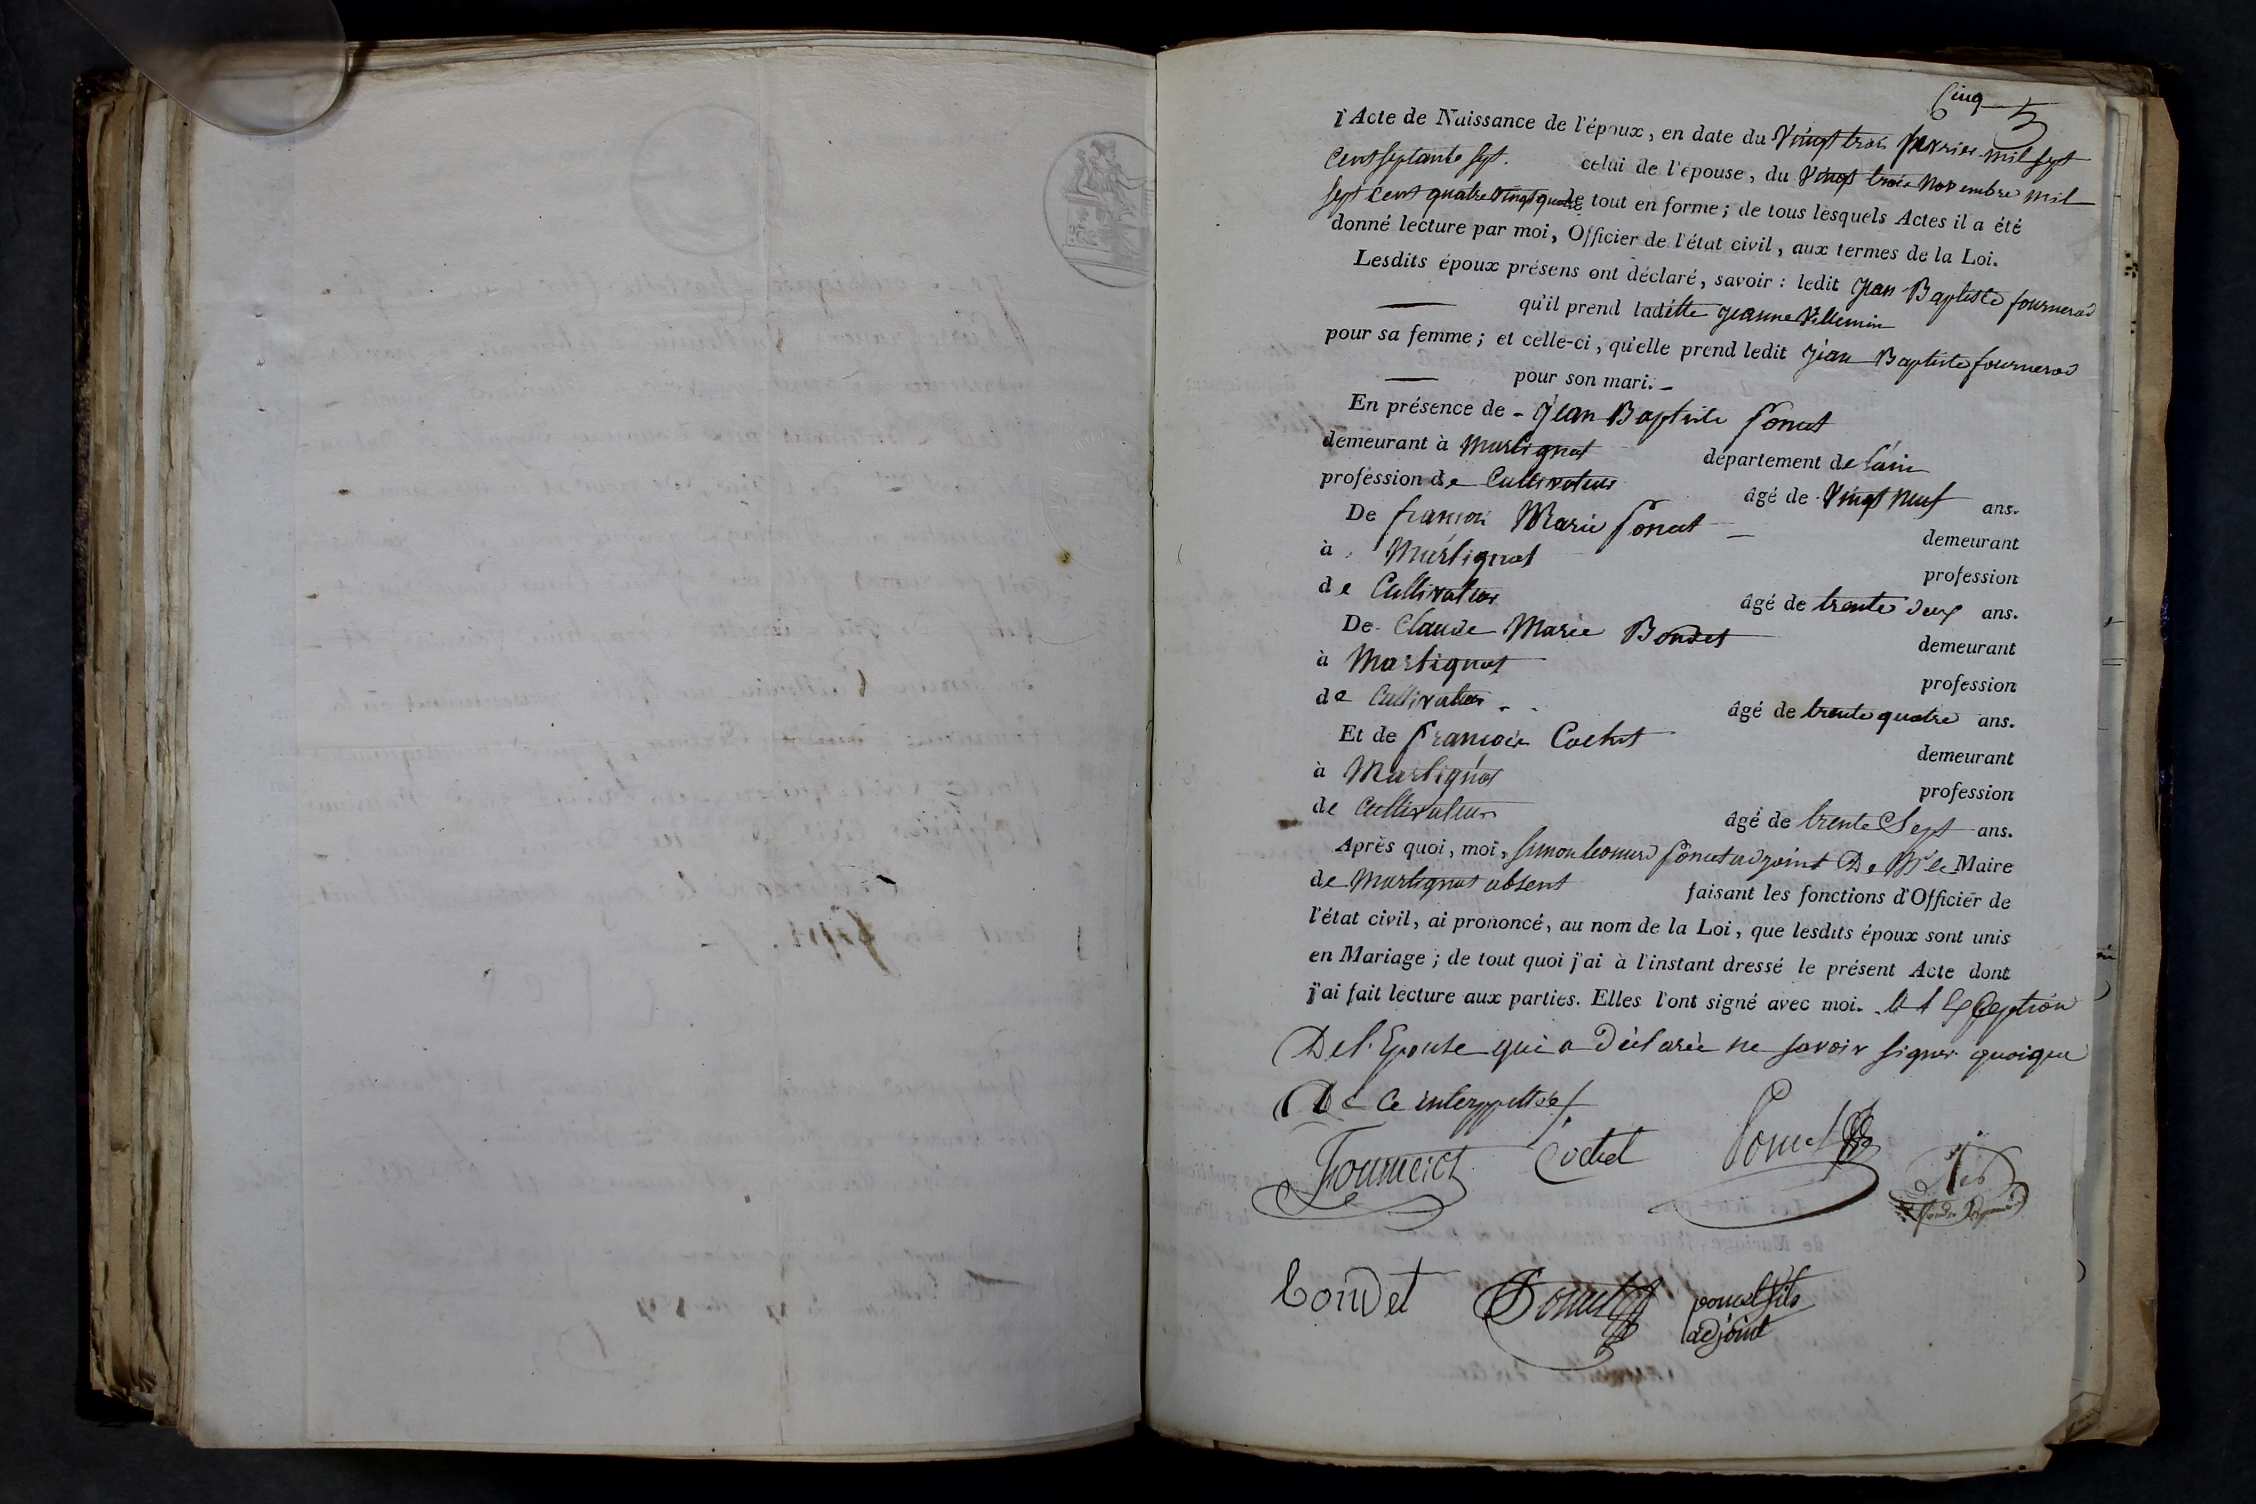 Cinq 5
l'Acte de Naissance de l'époux, en date du Vingt trois fevrier mil sept
Cent septante sept. celui de l'épouse, du Vingt trois Novembre mil
sept Cent quatre Vingt quatre le tout en forme; de tous lesquels Actes il a été
donné lecture par moi, Officier de l'état civil, aux termes de la Loi.
Lesdits époux présens ont déclaré, savoir: ledit Jean Baptiste fournerod
qu'il prend laditte Jeanne Villemin
pour sa femme; et celle-ci, qu'elle prend ledit Jean Baptiste fournerod
pour son mari. -
En présence de - Jean Baptiste Poncet
demeurant à Martignat département de l'ain
profession de Cultivateur âgé de Vingt Neuf ans.
De françois Marie Poncet - demeurant
à Martignat profession
de Cultivateur âgé de trente deux ans.
De Claude Marie Bondet demeurant
à Martignat profession
de Cultivateur âgé de trente quatre ans.
Et de François Cochet demeurant
à Martignat profession
de Cultivateur âgé de trente Sept ans.
Après quoi, moi, Simon leonard Poncet adjoint De Mr le Maire
de Martignat absent faisant les fonctions d'Officier de
l'état civil, ai prononcé, au nom de la Loi, que lesdits époux sont unis
en Mariage; de tout quoi j'ai à l'instant dressé le présent Acte dont
j'ai fait lecture aux parties. Elles l'ont signé avec moi. a l'Exception
De l'Epouse qui a déclarée ne savoir signer quoique
De ce interppellée
Fournerot Cochet Poncet
bondet Poncet poncet fils
adjoint